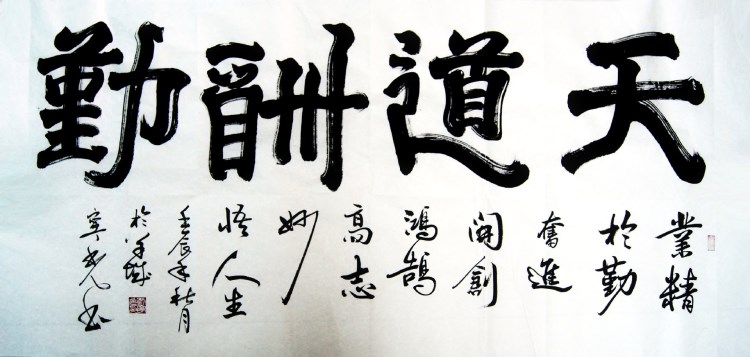 天道酬勤
業精
於勤
奮進
開創
鴻鵠
高志
妙
悟人生
壬辰年秋月
於羊城